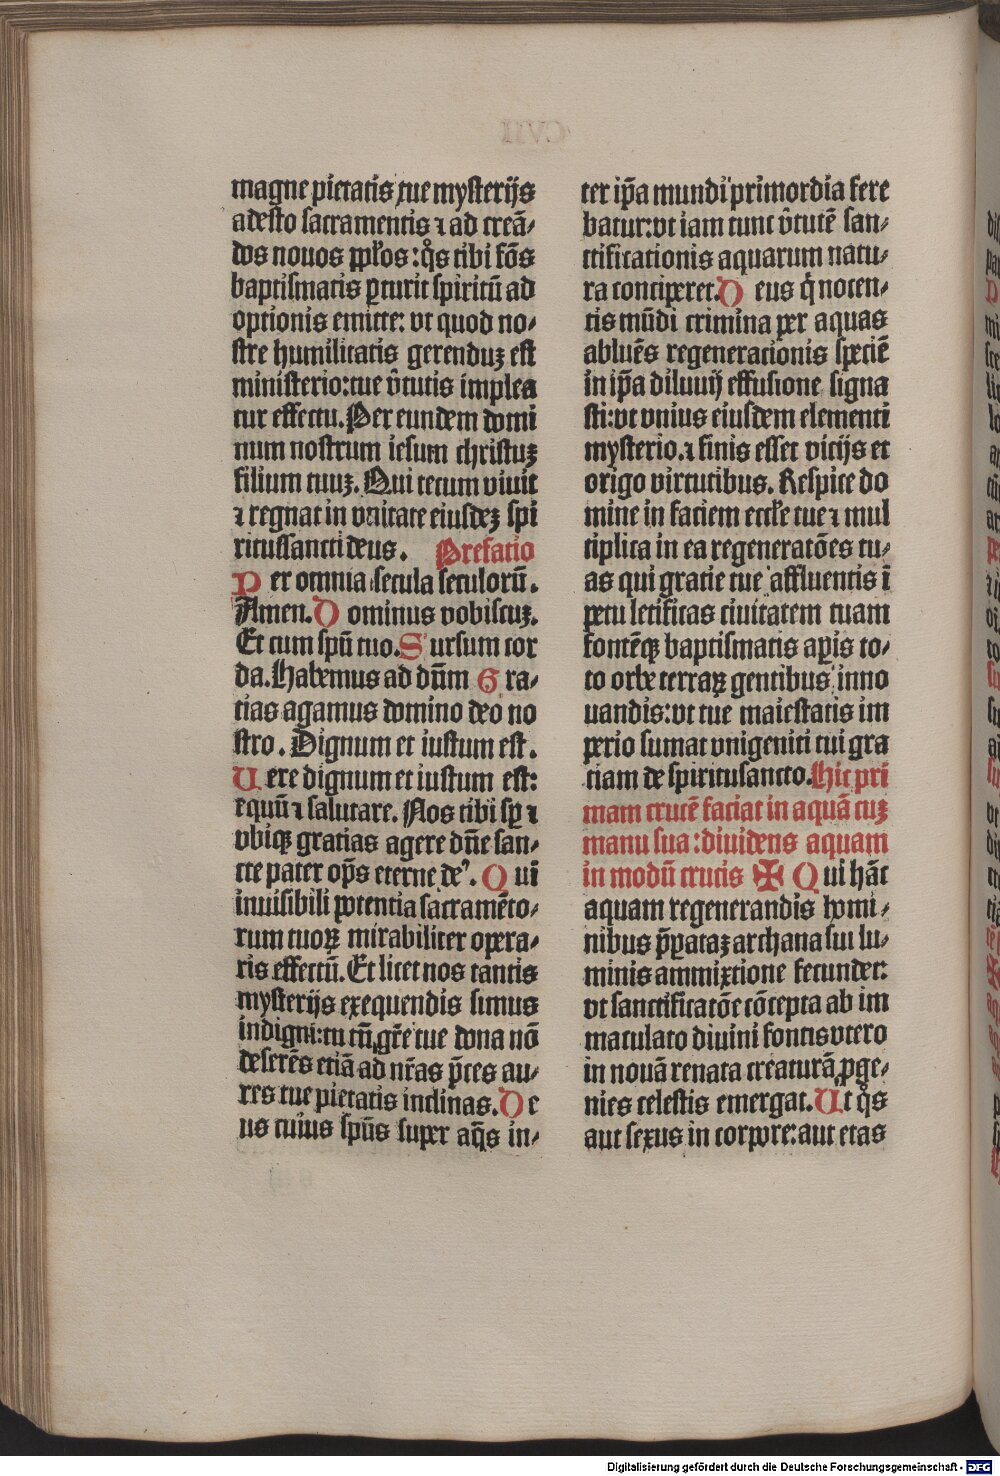 magne pietatis tue mysterijs
adesto sacramentis ⁊ ad creā-
dos nouos ppłos: q̊s tibi fōs
baptismatis ꝑturit spiritū ad
optionis emitte: vt quod no-
stre humilitatis gerenduꝫ est
ministerio: tue v̄tutis implea
tur effectu. Per eundem domi
num nostrum iesum christuꝫ
filium tuuꝫ. Qui tecum viuit
⁊ regnat in vnitate eiusdeꝫ spi
ritussancti deus. Prefatio
Per omnia secula seculorū.
Amen. Dominus vobiscuꝫ.
Et cum spū tuo. Sursum cor
da. Habemus ad dūm Gra-
tias agamus domino deo no
stro. Dignum et iustum est.
Uere dignum et iustum est:
equū ⁊ salutare. Nos tibi sꝑ ⁊
vbiqꝫ gratias agere dn̄e san-
cte pater op̄s eterne de⁹. Qui
inuisibili potentia sacramēto-
rum tuoꝝ mirabiliter opera-
ris effectū. Et licet nos tantis
mysterijs exequendis simus
indigni: tu tn̄ gr̄e tue dona nō
deserēs etiā ad nr̄as p̄ces au-
res tue pietatis inclinas. De
us cuius spūs super aq̄s in-
ter ip̄a mundi primordia fere
batur: vt iam tunc v̄tutē san-
ctificationis aquarum natu-
ra conciperet. Deus q̇ nocen-
tis mūdi crimina per aquas
abluēs regenerationis speciē
in ip̄a diluuij effusione signa
sti: vt vnius eiusdem elementi
mysterio. ⁊ finis esset vicijs et
origo virtutibus. Respice do
mine in faciem eccłe tue ⁊ mul
tiplica in ea regeneratōes tu-
as qui gratie tue affluentis ī
petu letificas ciuitatem tuam
fontēqꝫ baptismatis aꝑis to-
to orbe terraꝝ gentibus inno
uandis: vt tue maiestatis im
perio sumat vnigeniti tui gra
tiam de spiritusancto. Hic pri
mam crucē faciat in aquā cuꝫ
manu sua: diuidens aquam
in modū crucis ✠ Qui hāc
aquam regenerandis homi-
nibus p̄ꝑataꝫ archana sui lu-
minis ammixtione fecundet:
vt sanctificatōe cōcepta ab im
maculato diuini fontis vtero
in nouā renata creaturā ꝓge-
nies celestis emergat. Ut q̊s
aut sexus in corpore: aut etas
Digitalisierung gefördert durch die Deutsche Forschungsgemeinschaft - DFG